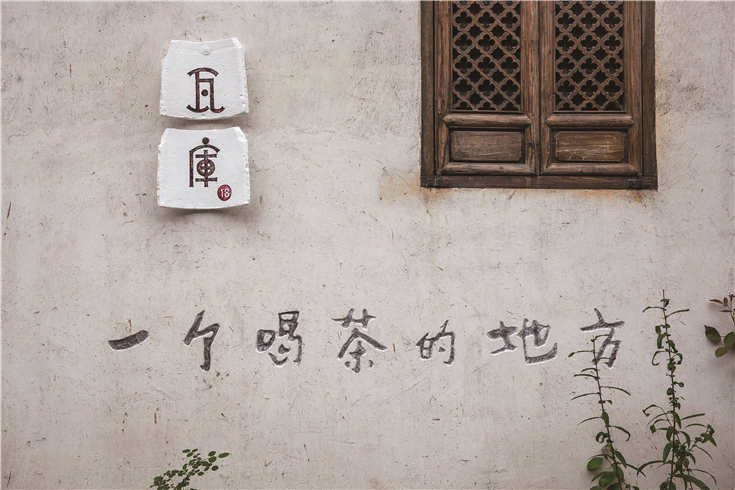 瓦
庫
18
一个喝茶的地方